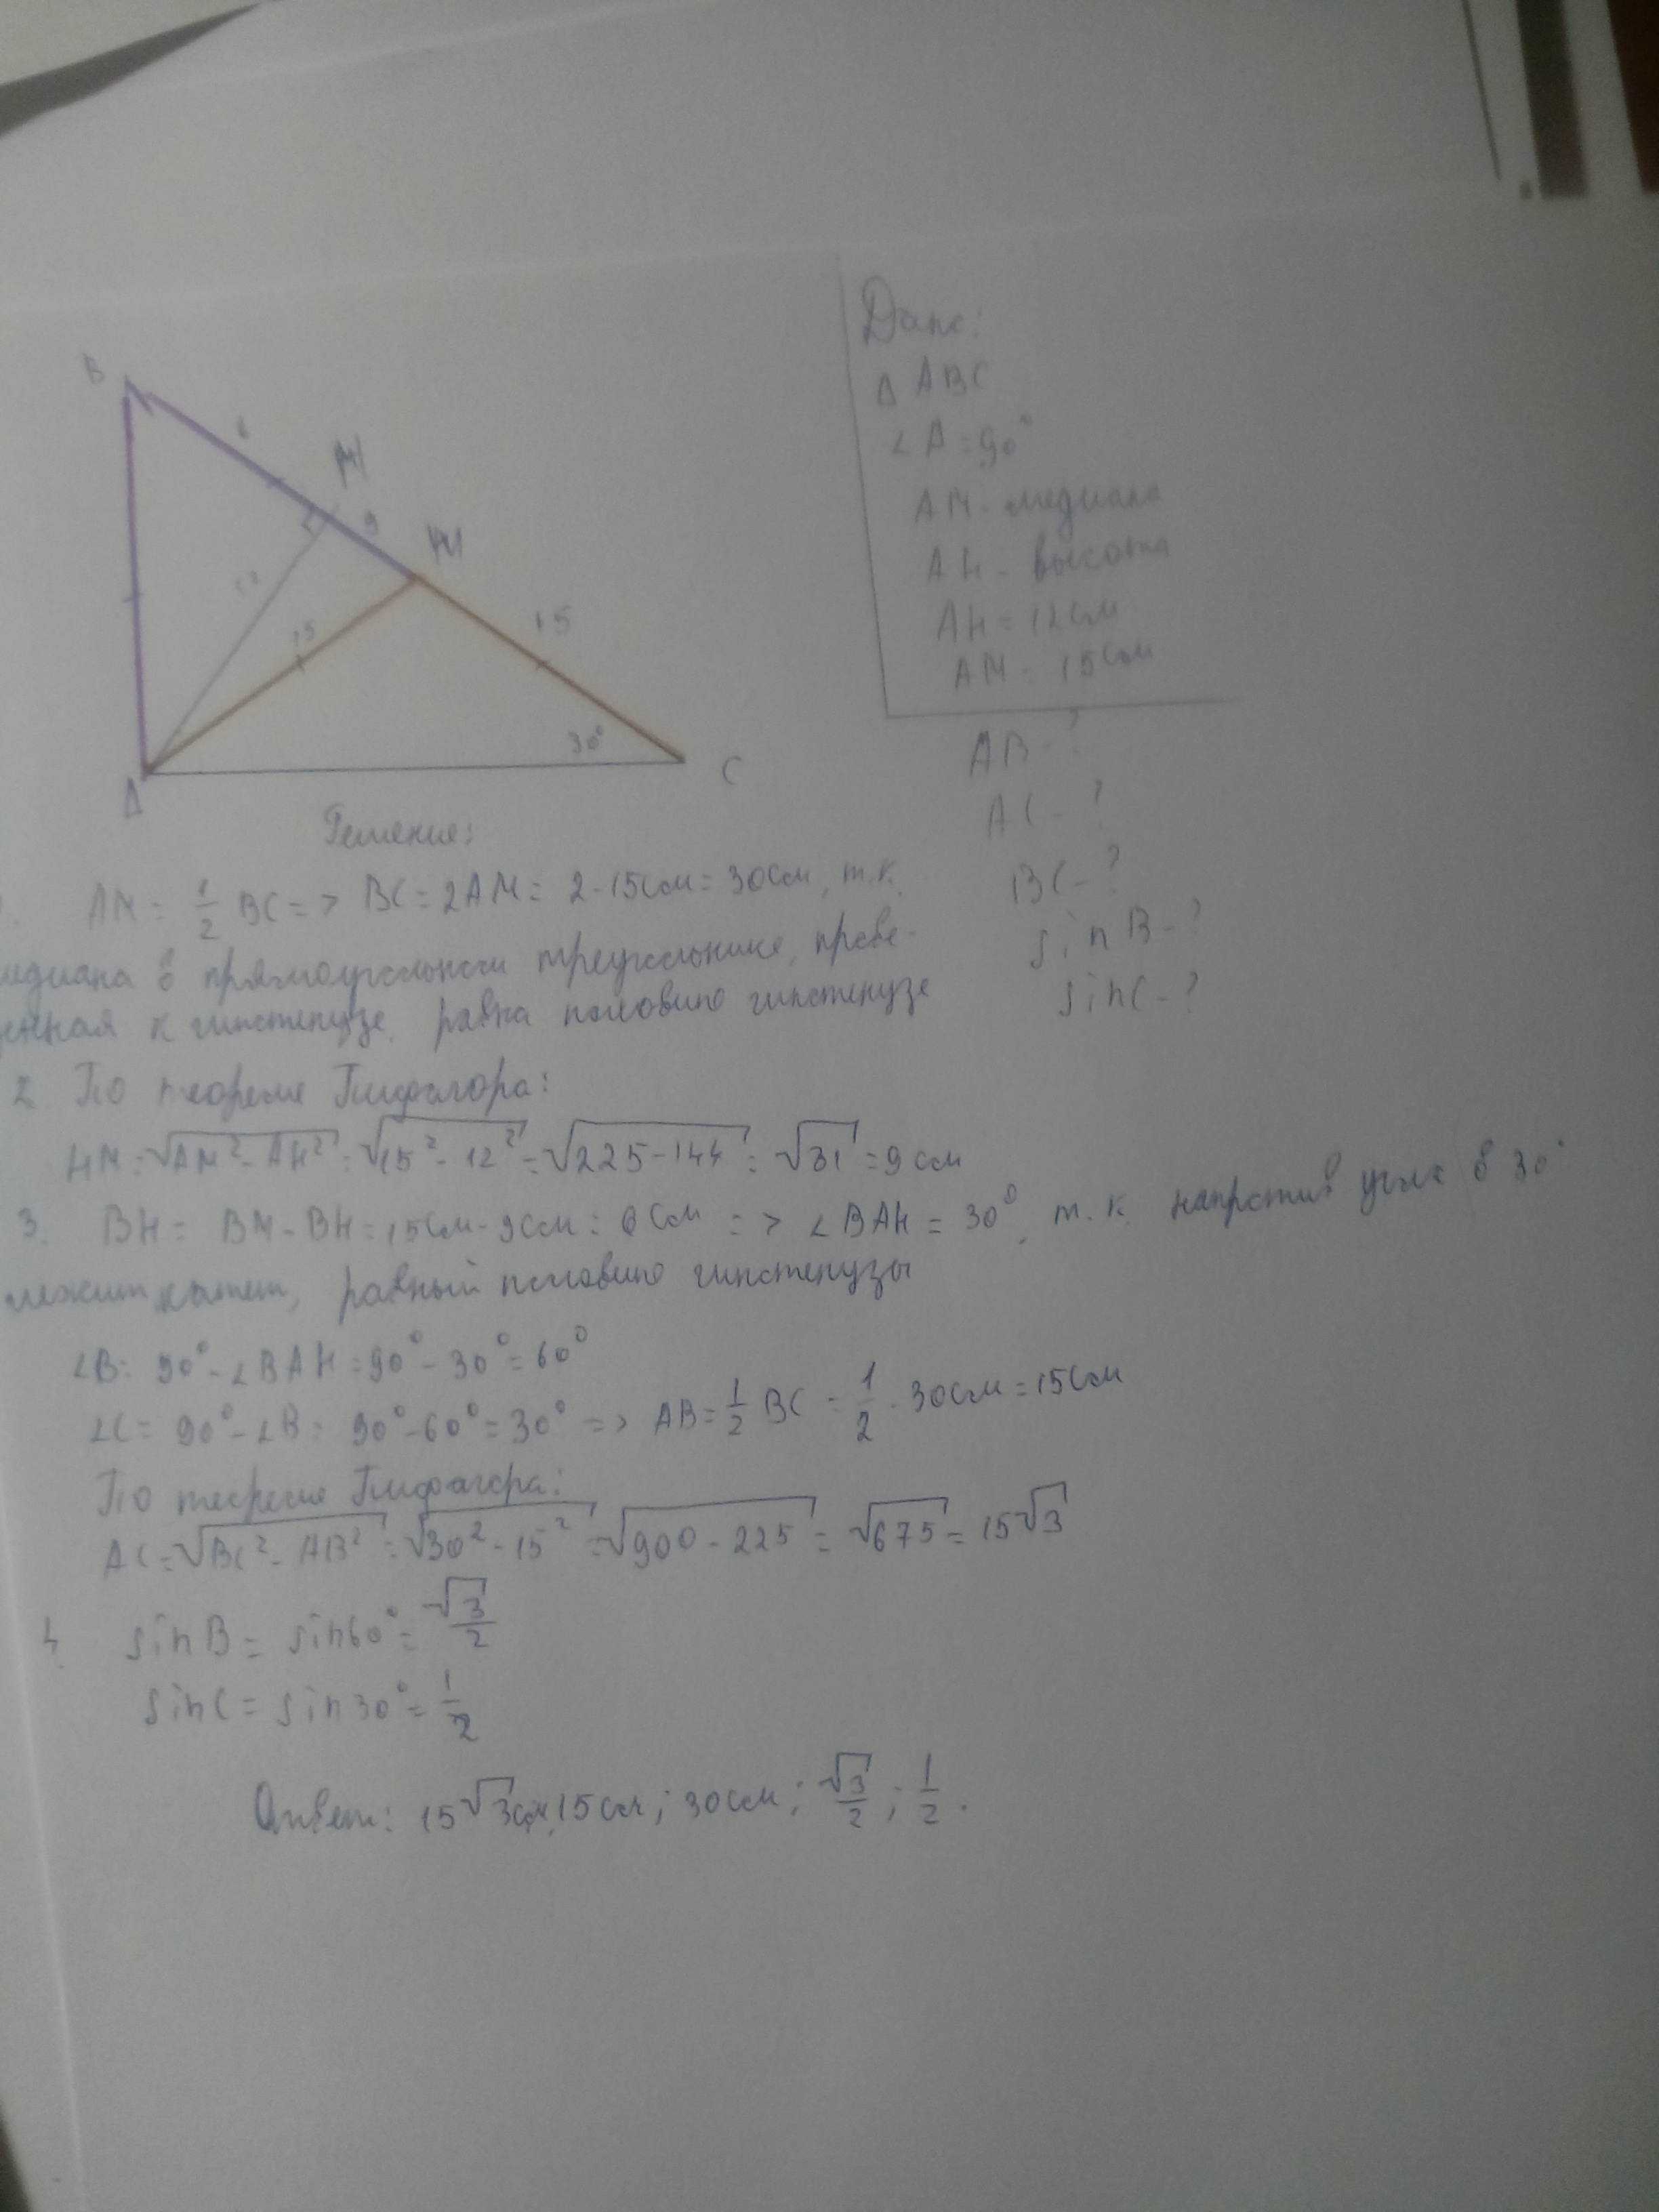 B
6
H
9
M
12
15
15
30°
A
C
Дано:
Δ ABC
∠A = 90°
AM - медиана
AH - высота
AH = 12 см
AM = 15 см
AB - ?
AC - ?
BC - ?
sin B - ?
sin C - ?
Решение:
1. AM = 1/2 BC => BC = 2AM = 2·15 см = 30 см, т.к.
медиана в прямоугольном треугольнике, прове-
денная к гипотенузе, равна половине гипотенузе
2. По теореме Пифагора:
HM = √(AM² - AH²) = √(15² - 12²) = √(225 - 144) = √81 = 9 см
3. BH = BM - BH = 15 см - 9 см = 6 см => ∠BAH = 30°, т.к. напротив угла в 30°
лежит катет, равный половине гипотенузы
∠B = 90° - ∠BAH = 90° - 30° = 60°
∠C = 90° - ∠B = 90° - 60° = 30° => AB = 1/2 BC = 1/2 · 30 см = 15 см
По теореме Пифагора:
AC = √(BC² - AB²) = √(30² - 15²) = √(900 - 225) = √675 = 15√3
4. sin B = sin 60° = √3/2
sin C = sin 30° = 1/2
Ответ: 15√3 см, 15 см; 30 см; √3/2; 1/2.